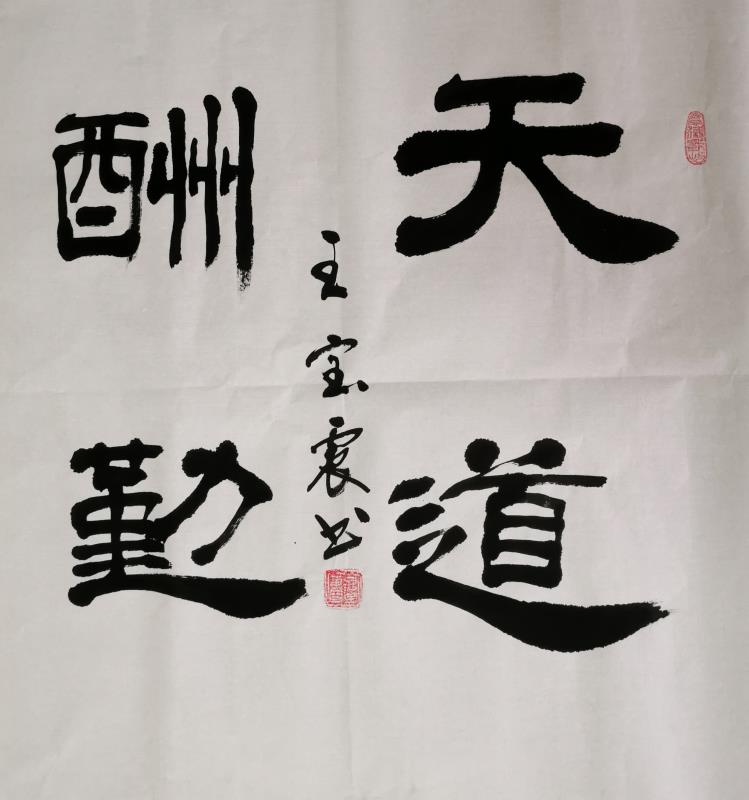 天道
酬勤
王宝震书